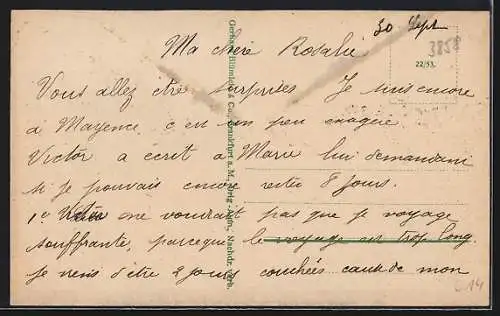 30 Sept
3858
22/53.
Ma chère Rosalie
Vous allez être surprises Je suis encore
à Mayence c'est un peu exagéré
Victor a écrit à Marie lui demandant
si je pouvais encore rester 8 jours.
ne voudrait pas que je voyage
souffrante, parceque le voyage est trop long.
je viens d'être 2 jours couchées cause de mon
Gerhard Blümlein & Co., Frankfurt a. M., Orig.-Aufn., Nachdr. verb.